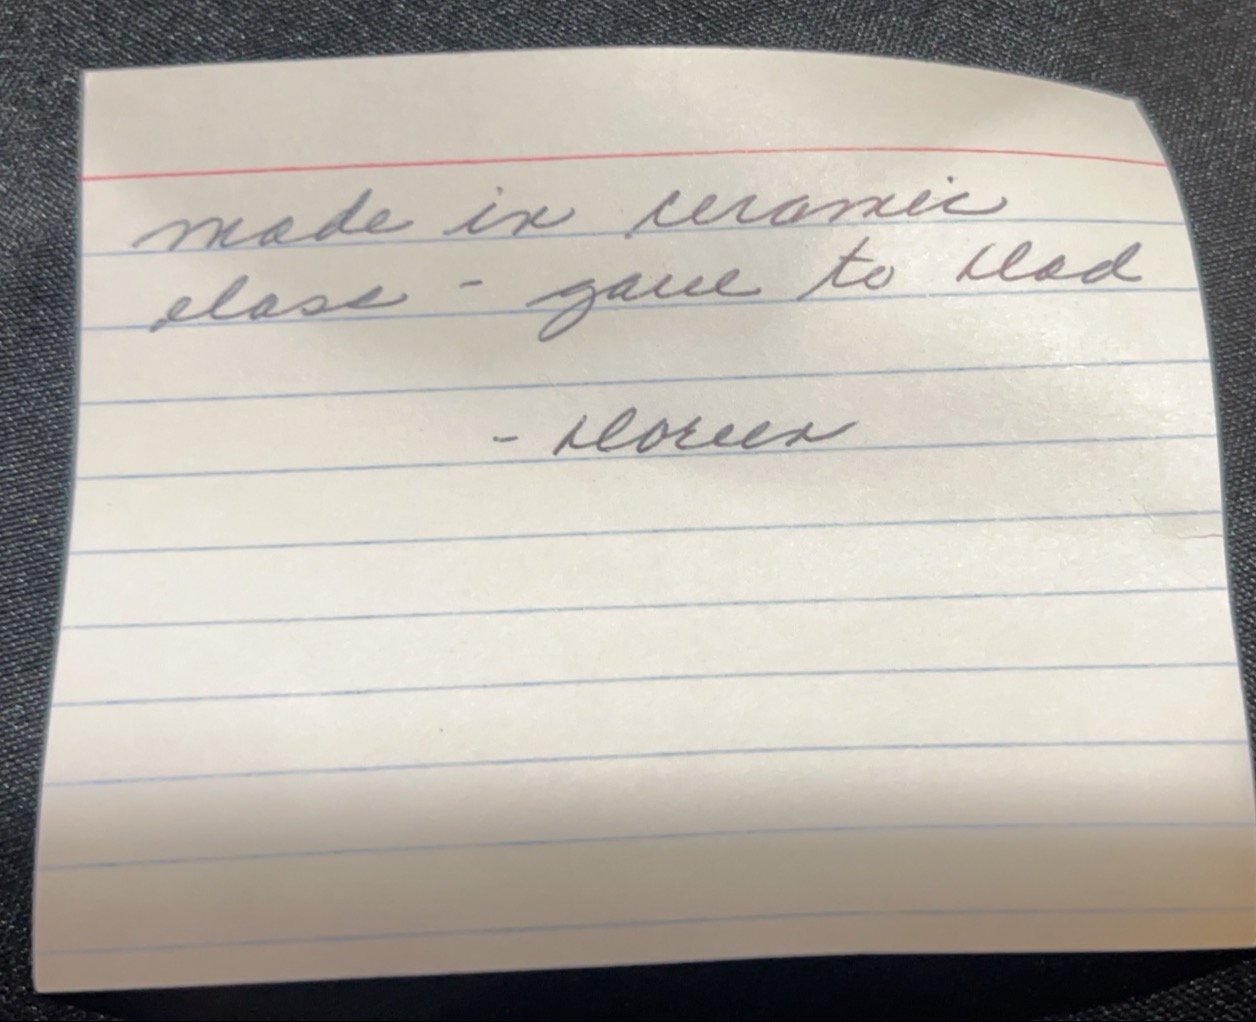 made in ceramic
class - gave to Dad
- Doreen